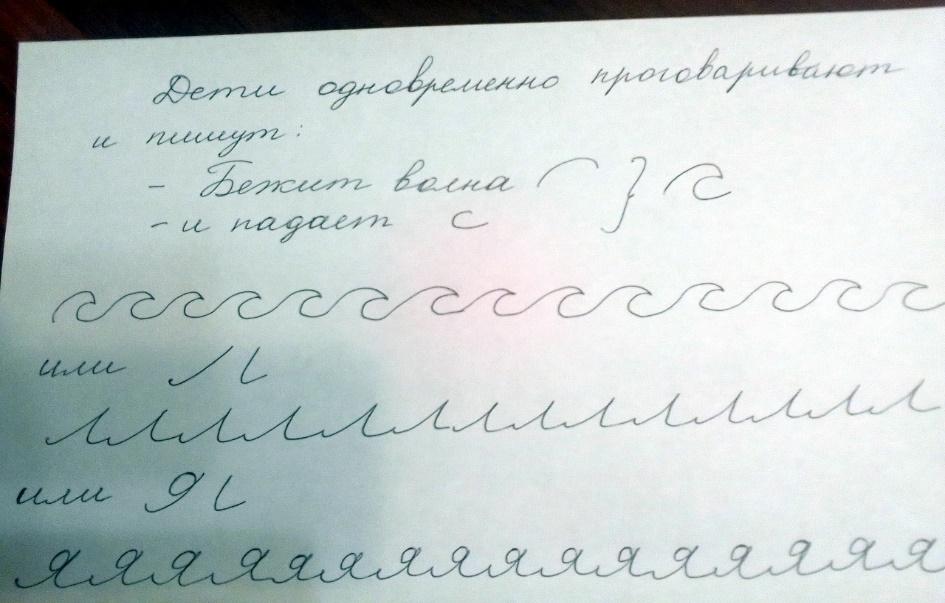 Дети одновременно проговаривают
и пишут:
- Бежит волна
- и падает с
или
или
яяяяяяяяяяяяяя